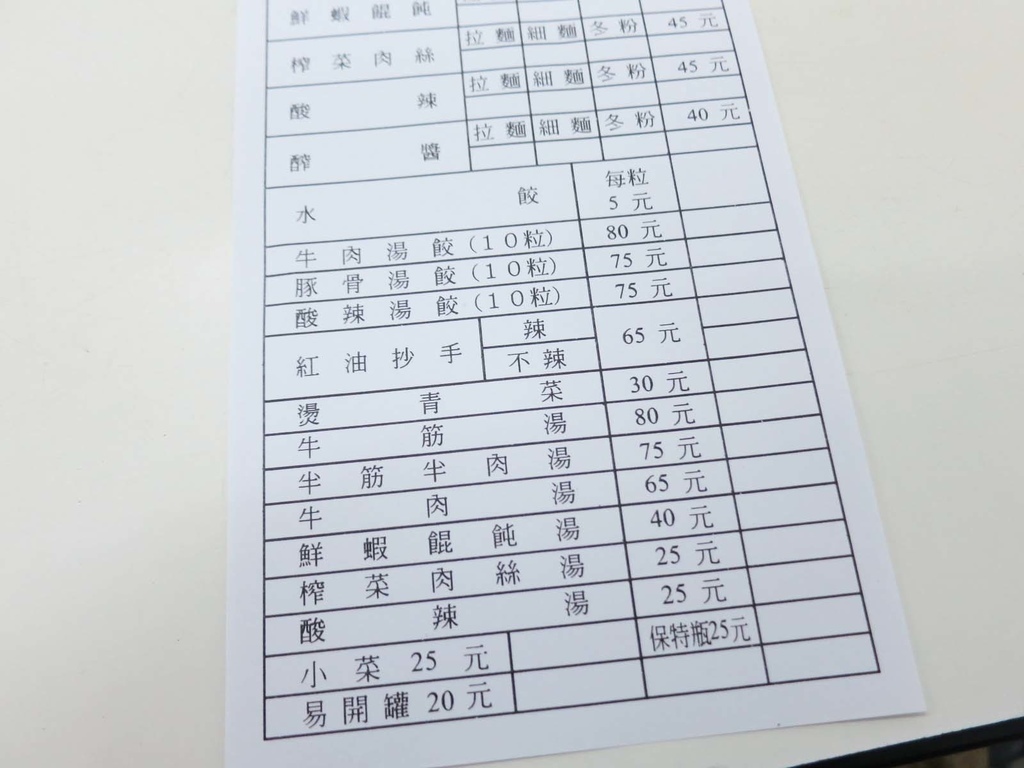 鮮蝦餛飩
榨菜肉絲 拉麵 細麵 冬粉 45元
酸辣 拉麵 細麵 冬粉 45元
醡醬 拉麵 細麵 冬粉 40元
水餃 每粒 5元
牛肉湯餃(10粒) 80元
豚骨湯餃(10粒) 75元
酸辣湯餃(10粒) 75元
紅油抄手 辣 不辣 65元
燙青菜 30元
牛筋湯 80元
半筋半肉湯 75元
牛肉湯 65元
鮮蝦餛飩湯 40元
榨菜肉絲湯 25元
酸辣湯 25元
小菜25元 保特瓶25元
易開罐20元